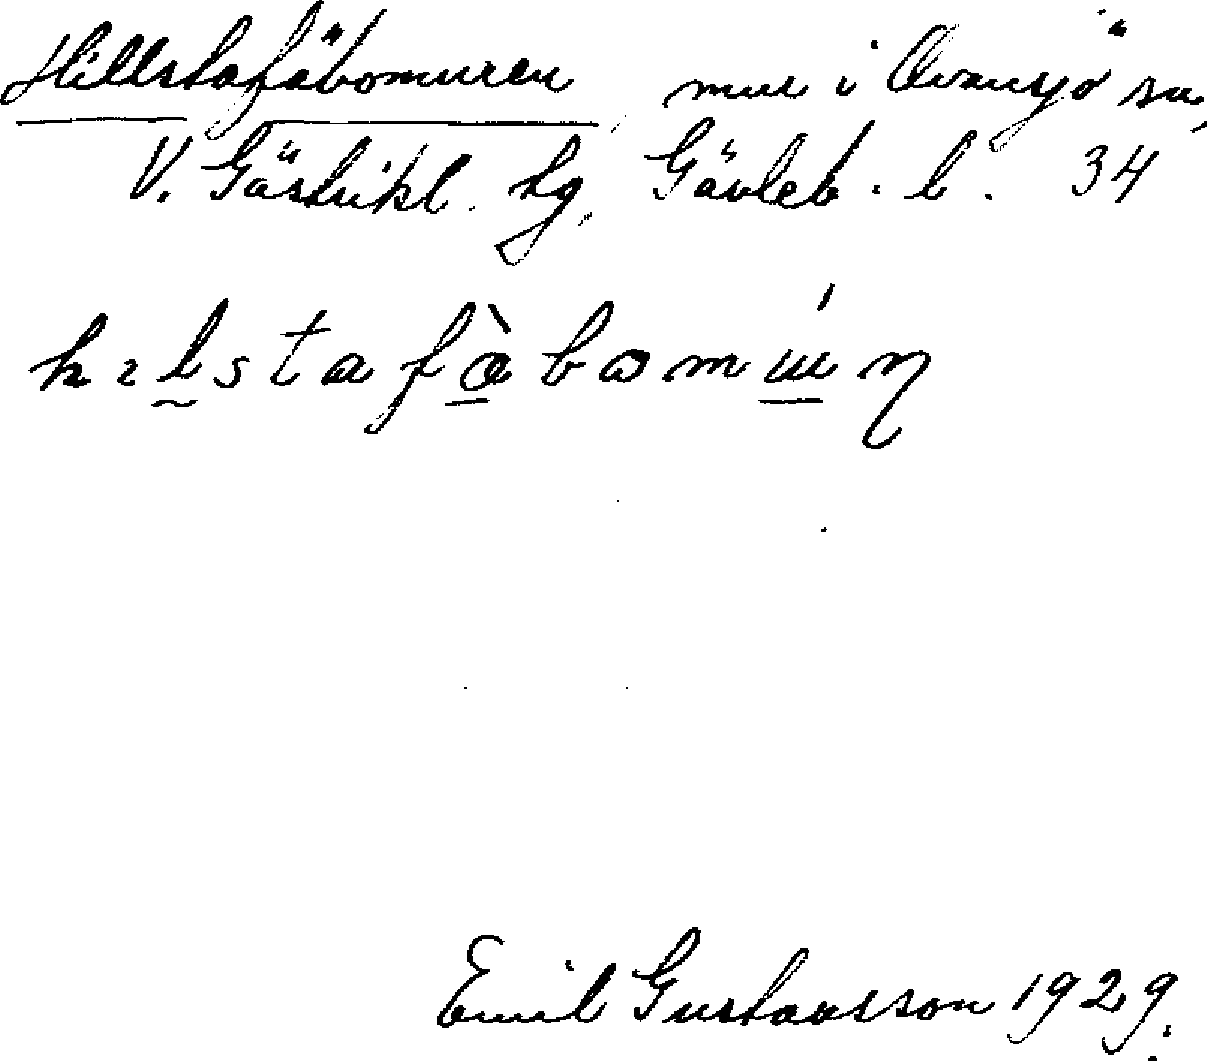 Hillstafäbomuren, mur i Ovansjö sn,
V. Gästrikl. tg, Gävleb. l. 34
hılstafàbωmɯ́ŋ
Emil Gustavsson 1929.